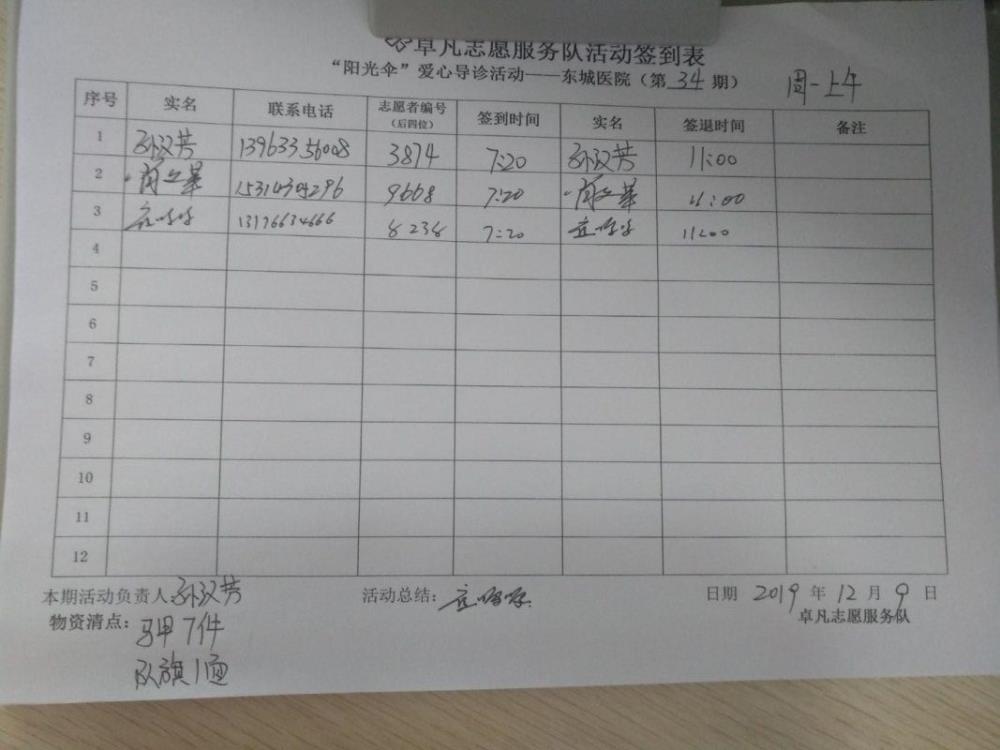 卓凡志愿服务队活动签到表
“阳光伞”爱心导诊活动——东城医院（第 34 期） 周一上午
序号 实名 联系电话 志愿者编号（后四位） 签到时间 实名 签退时间 备注
1 孙汉芳 13963356008 3874 7:20 孙汉芳 11:00
2 9668 7:20 11:00
3 13176634666 8238 7:20 11:00
4
5
6
7
8
9
10
11
12
本期活动负责人 孙汉芳 活动总结： 日期 2019 年 12 月 9 日
物资清点： 马甲7件 卓凡志愿服务队
队旗1面